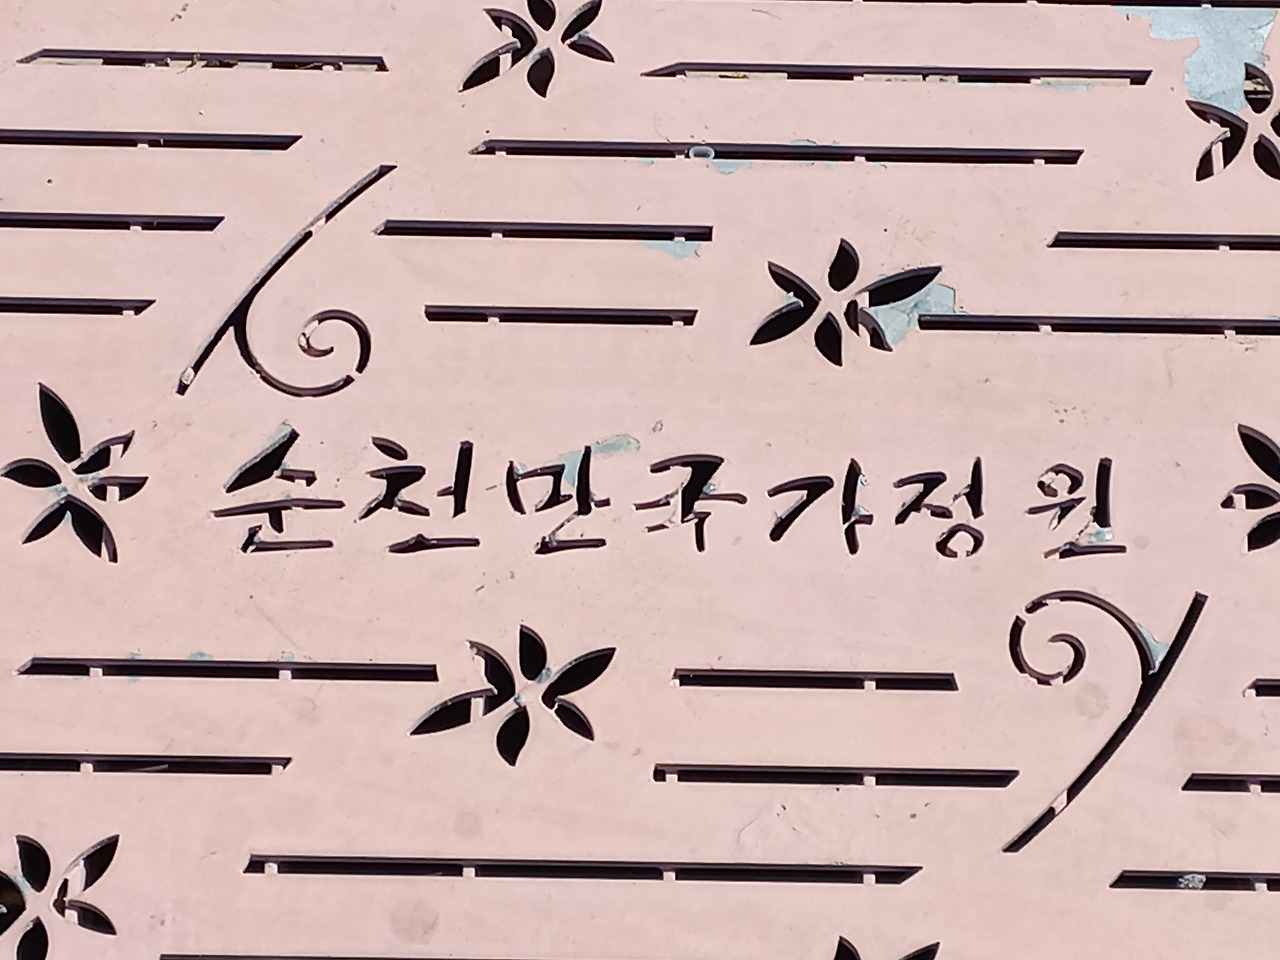 순천만국가정원